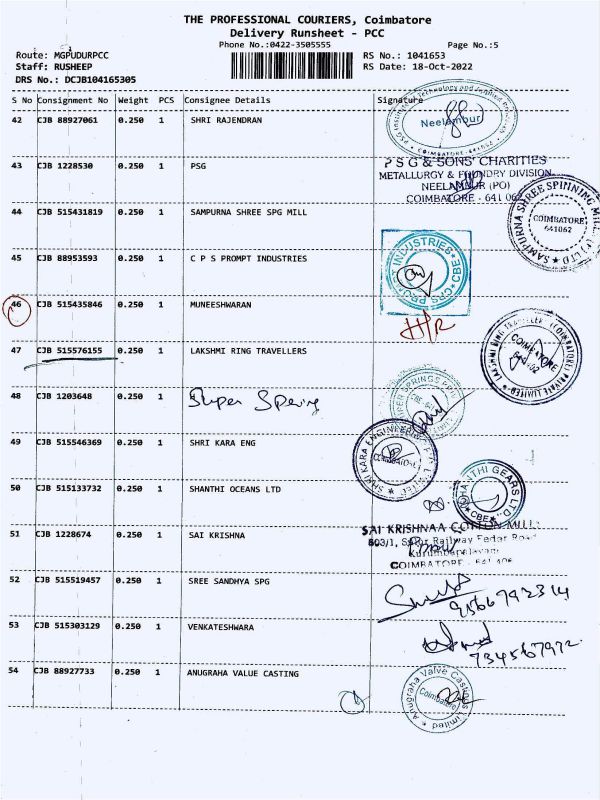 THE PROFESSIONAL COURIERS, Coimbatore
Delivery Runsheet - PCC
Phone No.:0422-3505555
Page No.:5
Route: MGPUDURPCC
RS No.: 1041653
Staff: RUSHEEP
RS Date: 18-Oct-2022
DRS No.: DCJB104165305
S No Consignment No Weight PCS Consignee Details Signature
42 CJB 88927061 0.250 1 SHRI RAJENDRAN
Neelambur
COIMBATORE
43 CJB 1228530 0.250 1 PSG
PSG & SONS' CHARITIES
METALLURGY & FOUNDRY DIVISION
NEELAMBUR (PO)
COIMBATORE - 641 062
44 CJB 515431819 0.250 1 SAMPURNA SHREE SPG MILL
SAMPURNA SHREE SPINNING MILL (P) LTD
COIMBATORE
641062
45 CJB 88953593 0.250 1 C P S PROMPT INDUSTRIES
CPS PROMPT INDUSTRIES CBE
46 CJB 515435846 0.250 1 MUNEESHWARAN
H/R
47 CJB 515576155 0.250 1 LAKSHMI RING TRAVELLERS
LAKSHMI RING TRAVELLER (COIMBATORE) PRIVATE LIMITED
COIMBATORE
48 CJB 1203648 0.250 1 Super Spring
49 CJB 515546369 0.250 1 SHRI KARA ENG
SHRI KARA ENGINEERING PVT. LIMITED
COIMBATORE
50 CJB 515133732 0.250 1 SHANTHI OCEANS LTD
SHANTHI GEARS LTD.
CBE
51 CJB 1228674 0.250 1 SAI KRISHNA
SAI KRISHNAA COTTON MILL
Kurumbapalayam
COIMBATORE
52 CJB 515519457 0.250 1 SREE SANDHYA SPG
9566792314
53 CJB 515303129 0.250 1 VENKATESHWARA
7345567972
54 CJB 88927733 0.250 1 ANUGRAHA VALUE CASTING
Anugraha Valve Castings Limited
Coimbatore